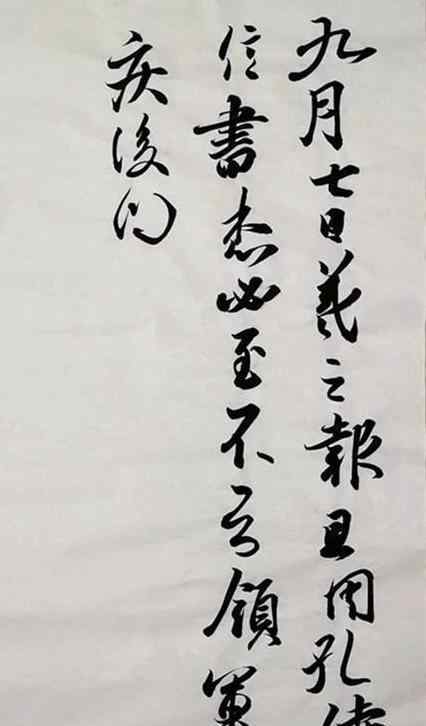 九月七日羲之報且因孔侍
信書想必至不知領軍
疾後問